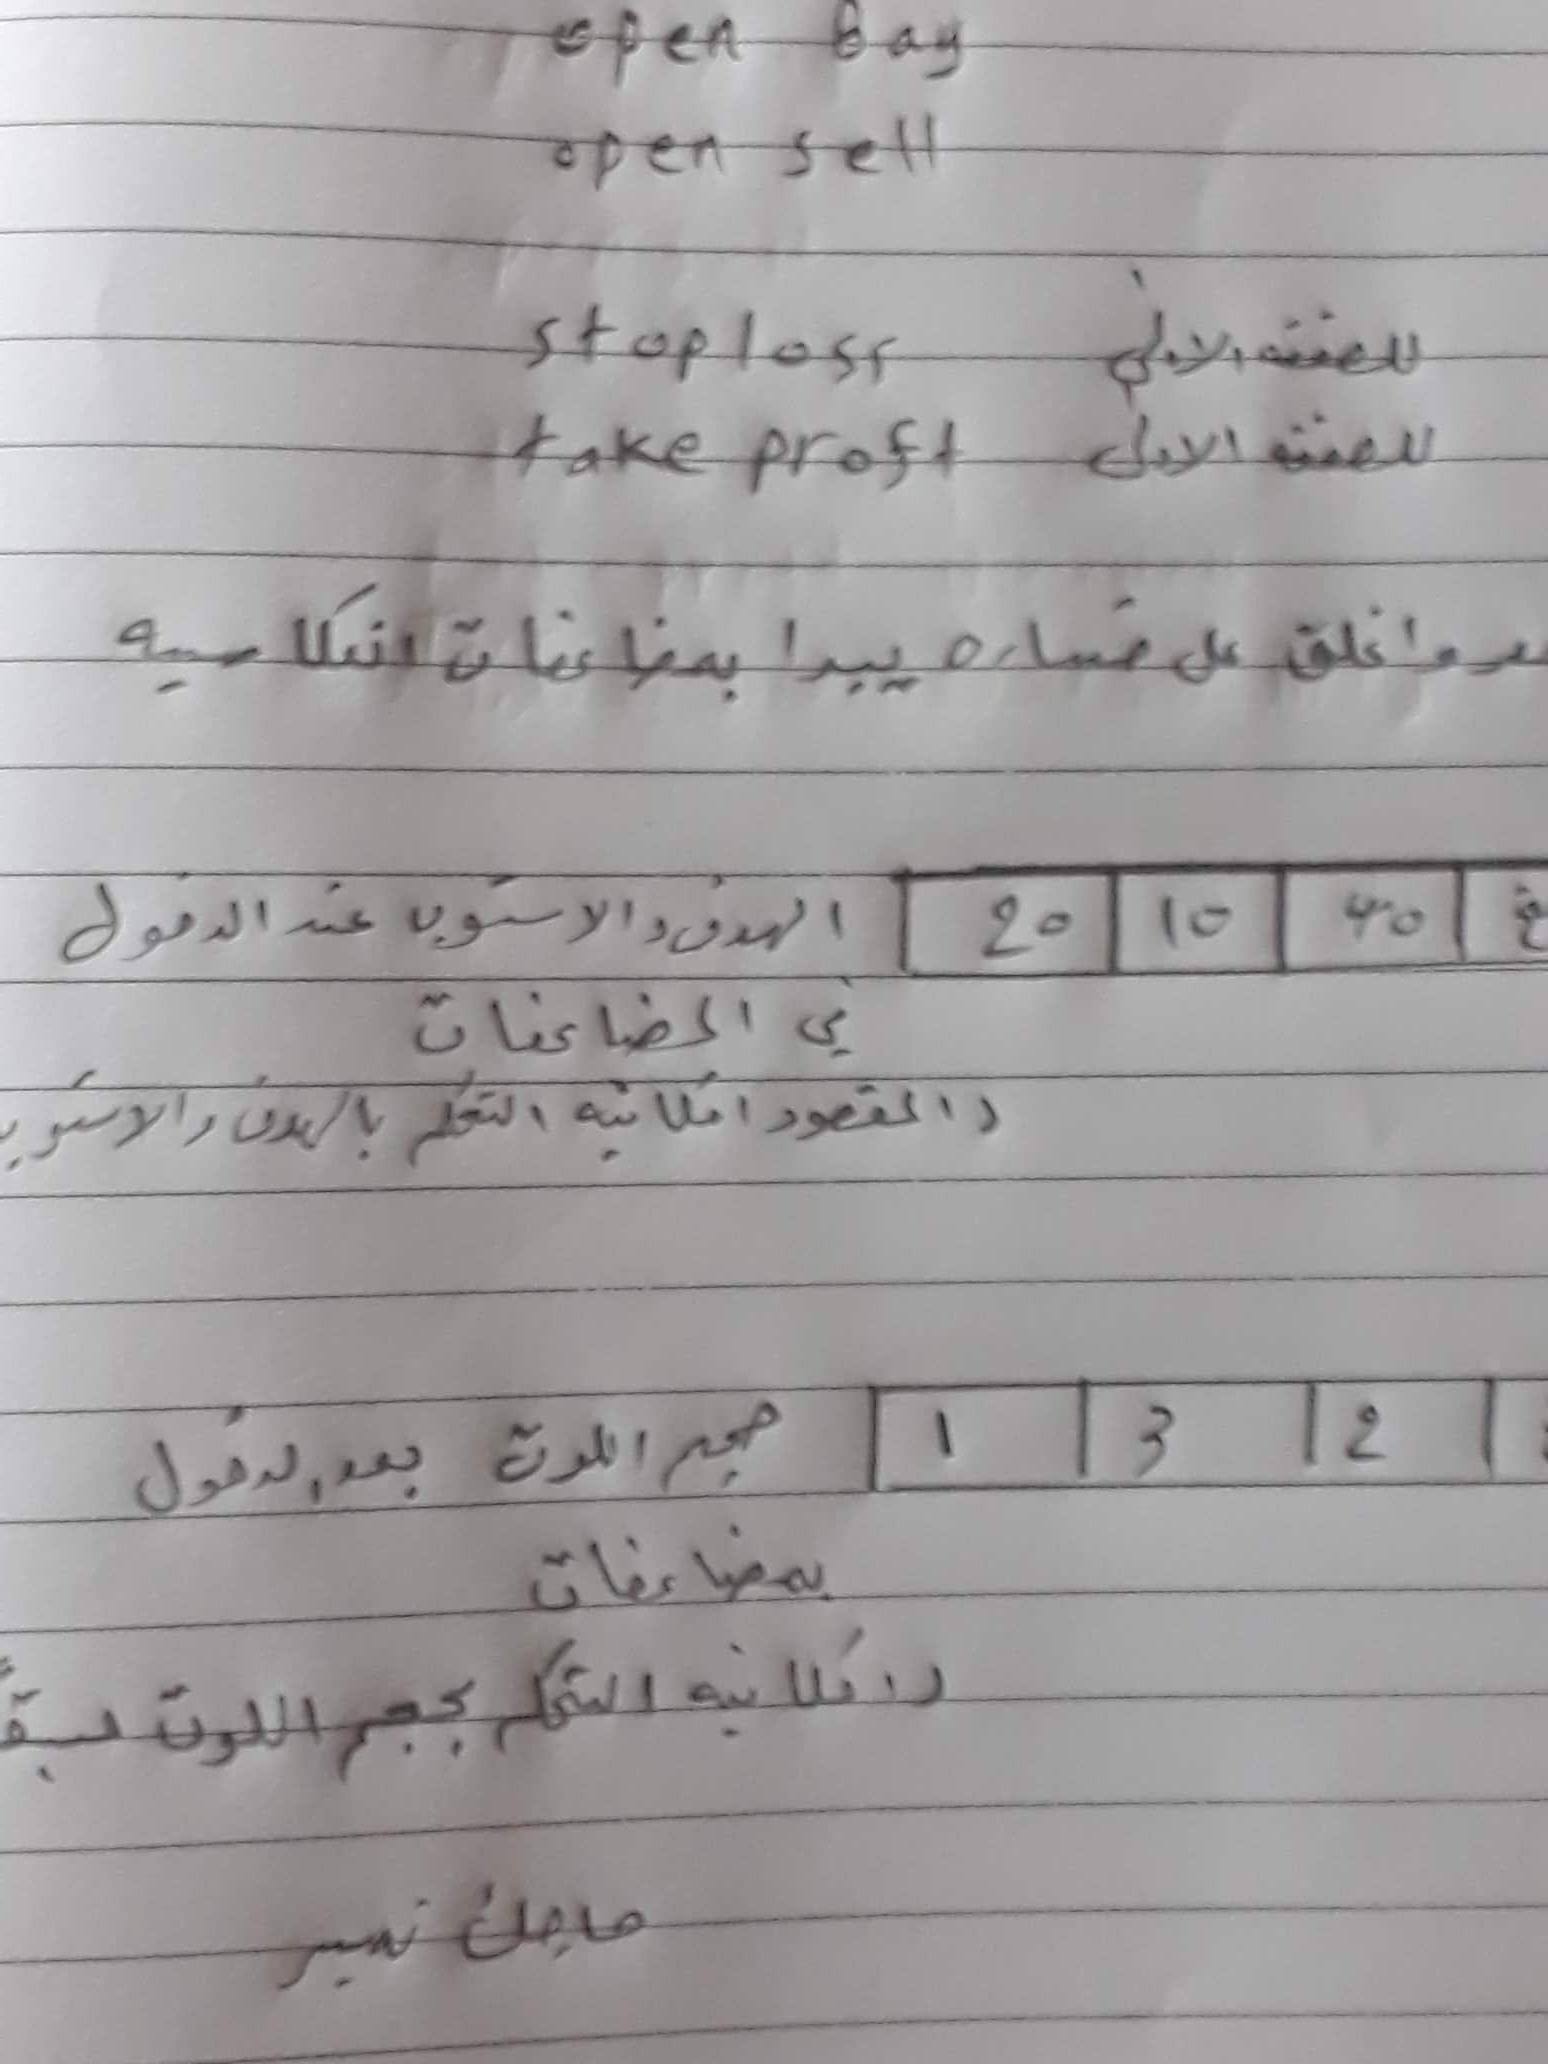 open bay
open sell
stoploss للصفقه الاولي
take proft للصفقه الاولى
واغلق على خساره يبدا بمضاعفات انعكاسيه
الهدف والاستوب عند الدخول 20 10 40
في المضاعفات
والمقصود امكانيه التحكم بالهدف والاستوب
حجم اللوت بعد الدخول 1 3 2
بمضاعفات
وامكانيه التحكم بحجم اللوت مسبقاً
ماجك نمبر